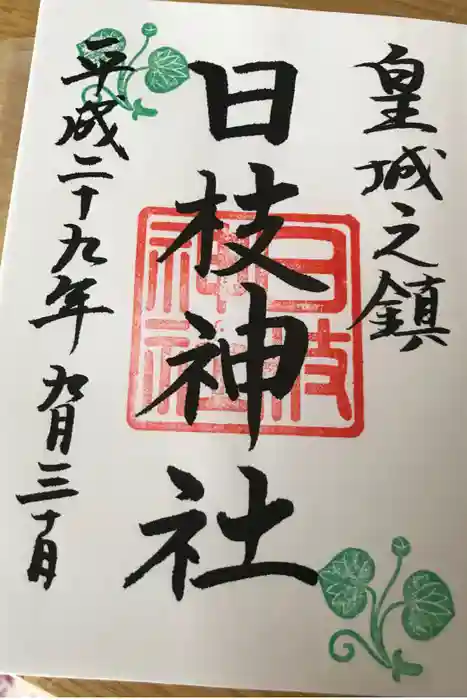 皇城之鎮
日枝神社
日枝
神社
平成二十九年 九月三十日